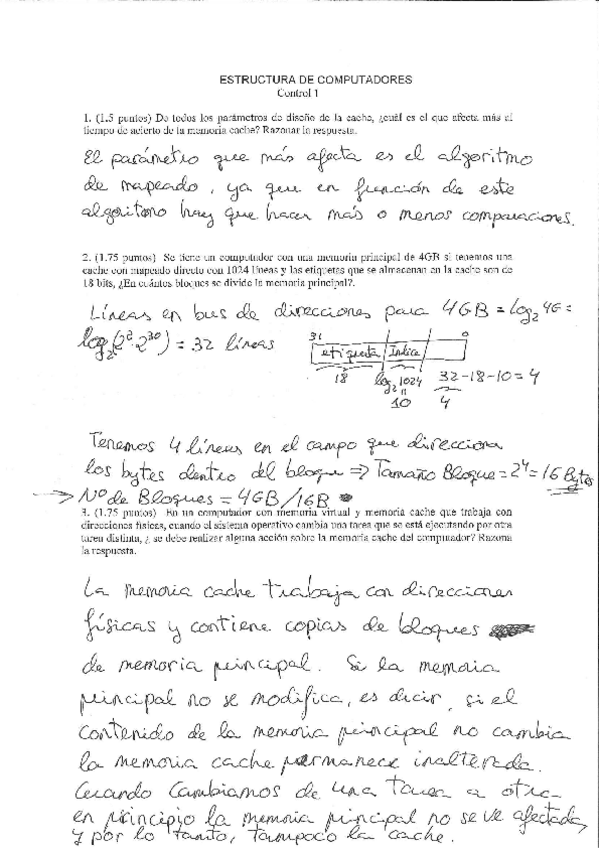 ESTRUCTURA DE COMPUTADORES
Control 1
1. (1.5 puntos) De todos los parámetros de diseño de la cache, ¿cuál es el que afecta más al
tiempo de acierto de la memoria cache? Razonar la respuesta.
El parámetro que más afecta es el algoritmo
de mapeado, ya que en función de este
algoritmo hay que hacer más o menos comparaciones.
2. (1.75 puntos) Se tiene un computador con una memoria principal de 4GB si tenemos una
cache con mapeado directo con 1024 líneas y las etiquetas que se almacenan en la cache son de
18 bits, ¿En cuántos bloques se divide la memoria principal?.
Líneas en bus de direcciones para 4GB = log₂ 4G =
log₂(2² 2³⁰) = 32 líneas
31 0
etiqueta Indice
18 log₂ 1024 32-18-10=4
" 4
10
Tenemos 4 líneas en el campo que direcciona
los bytes dentro del bloque => Tamaño Bloque = 2⁴ = 16 Bytes
→ Nº de Bloques = 4GB/16B
3. (1.75 puntos) En un computador con memoria virtual y memoria cache que trabaja con
direcciones físicas, cuando el sistema operativo cambia una tarea que se está ejecutando por otra
tarea distinta, ¿ se debe realizar alguna acción sobre la memoria cache del computador? Razona
la respuesta.
La memoria cache trabaja con direcciones
físicas y contiene copias de bloques
de memoria principal. Si la memoria
principal no se modifica, es decir, si el
contenido de la memoria principal no cambia
la memoria cache permanece inalterada.
Cuando cambiamos de una tarea a otra
en principio la memoria principal no se ve afectada,
y por lo tanto, tampoco la cache.